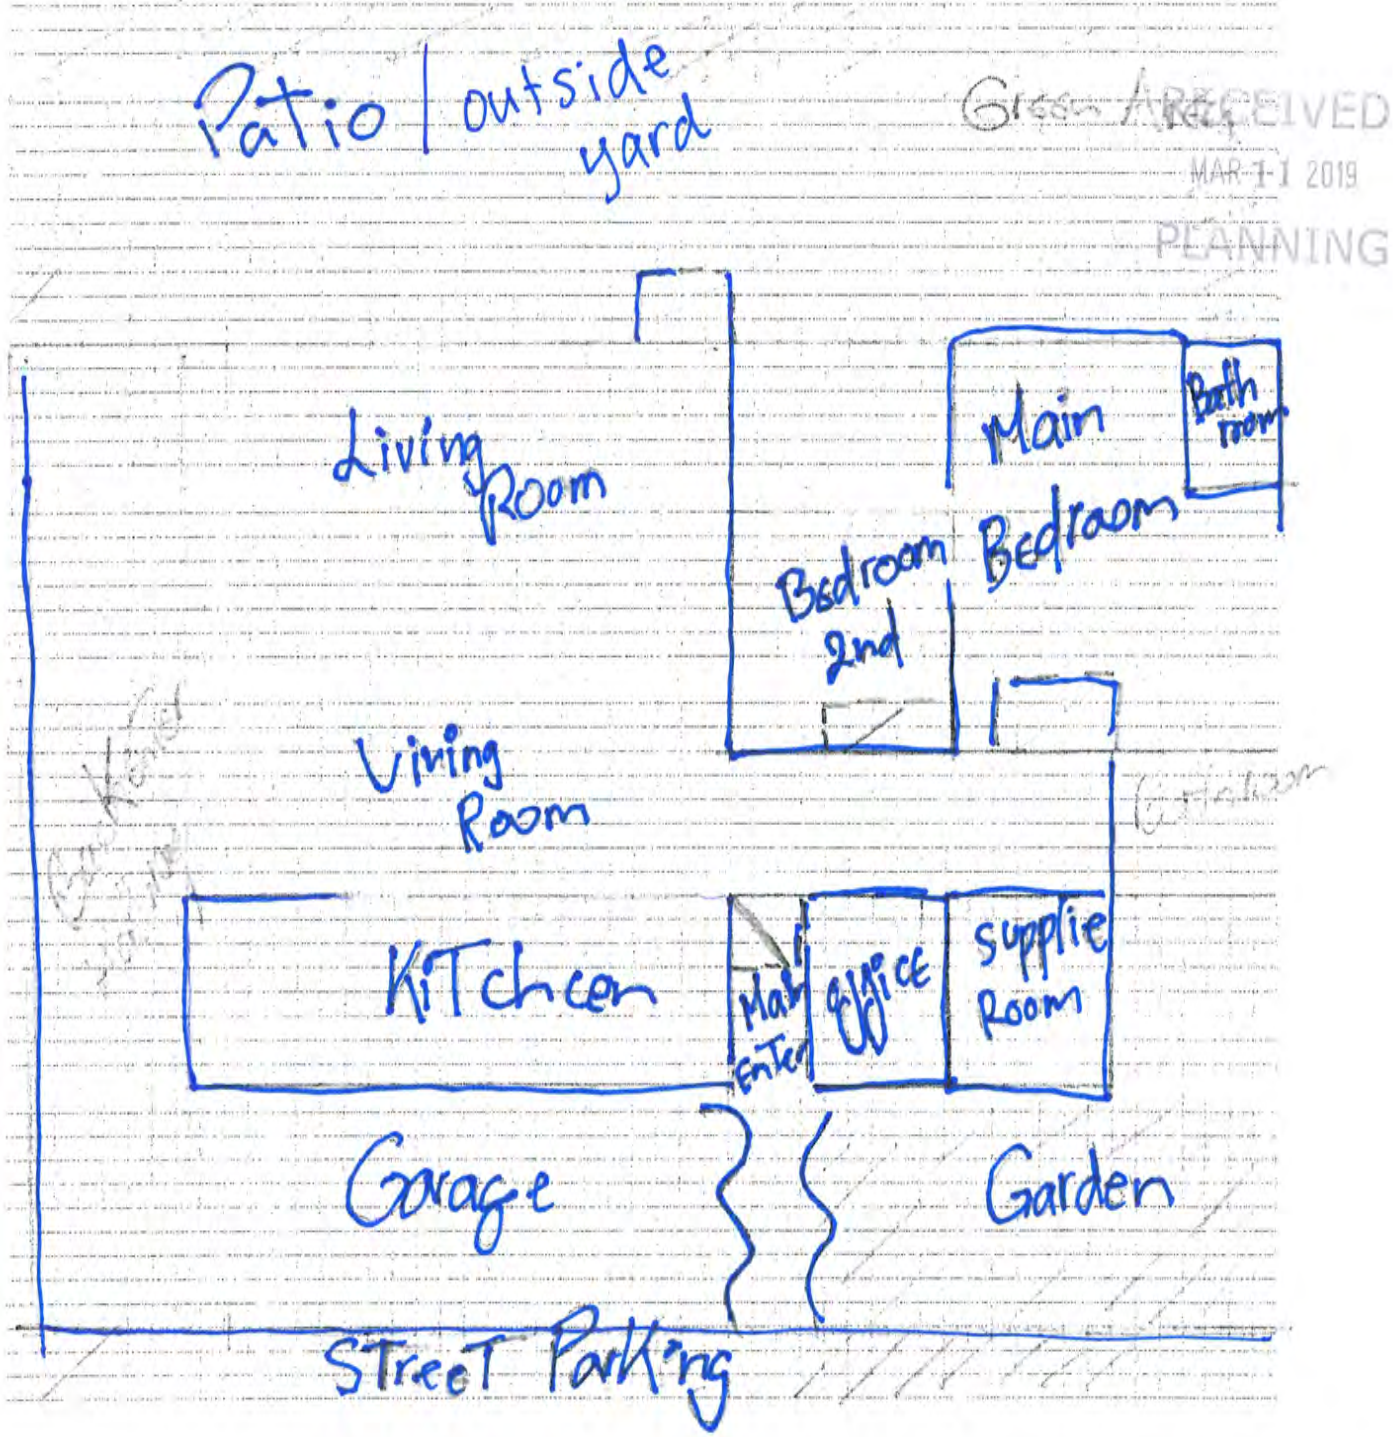 Patio / outside
yard
Green Area
RECEIVED
MAR 11 2019
PLANNING
Living
Room
Main
Bedroom
Bath
room
Bedroom
2nd
Viving
Room
KiTchcen
Main
EnTer
office
supplie
Room
Garage
Garden
STreeT Parking